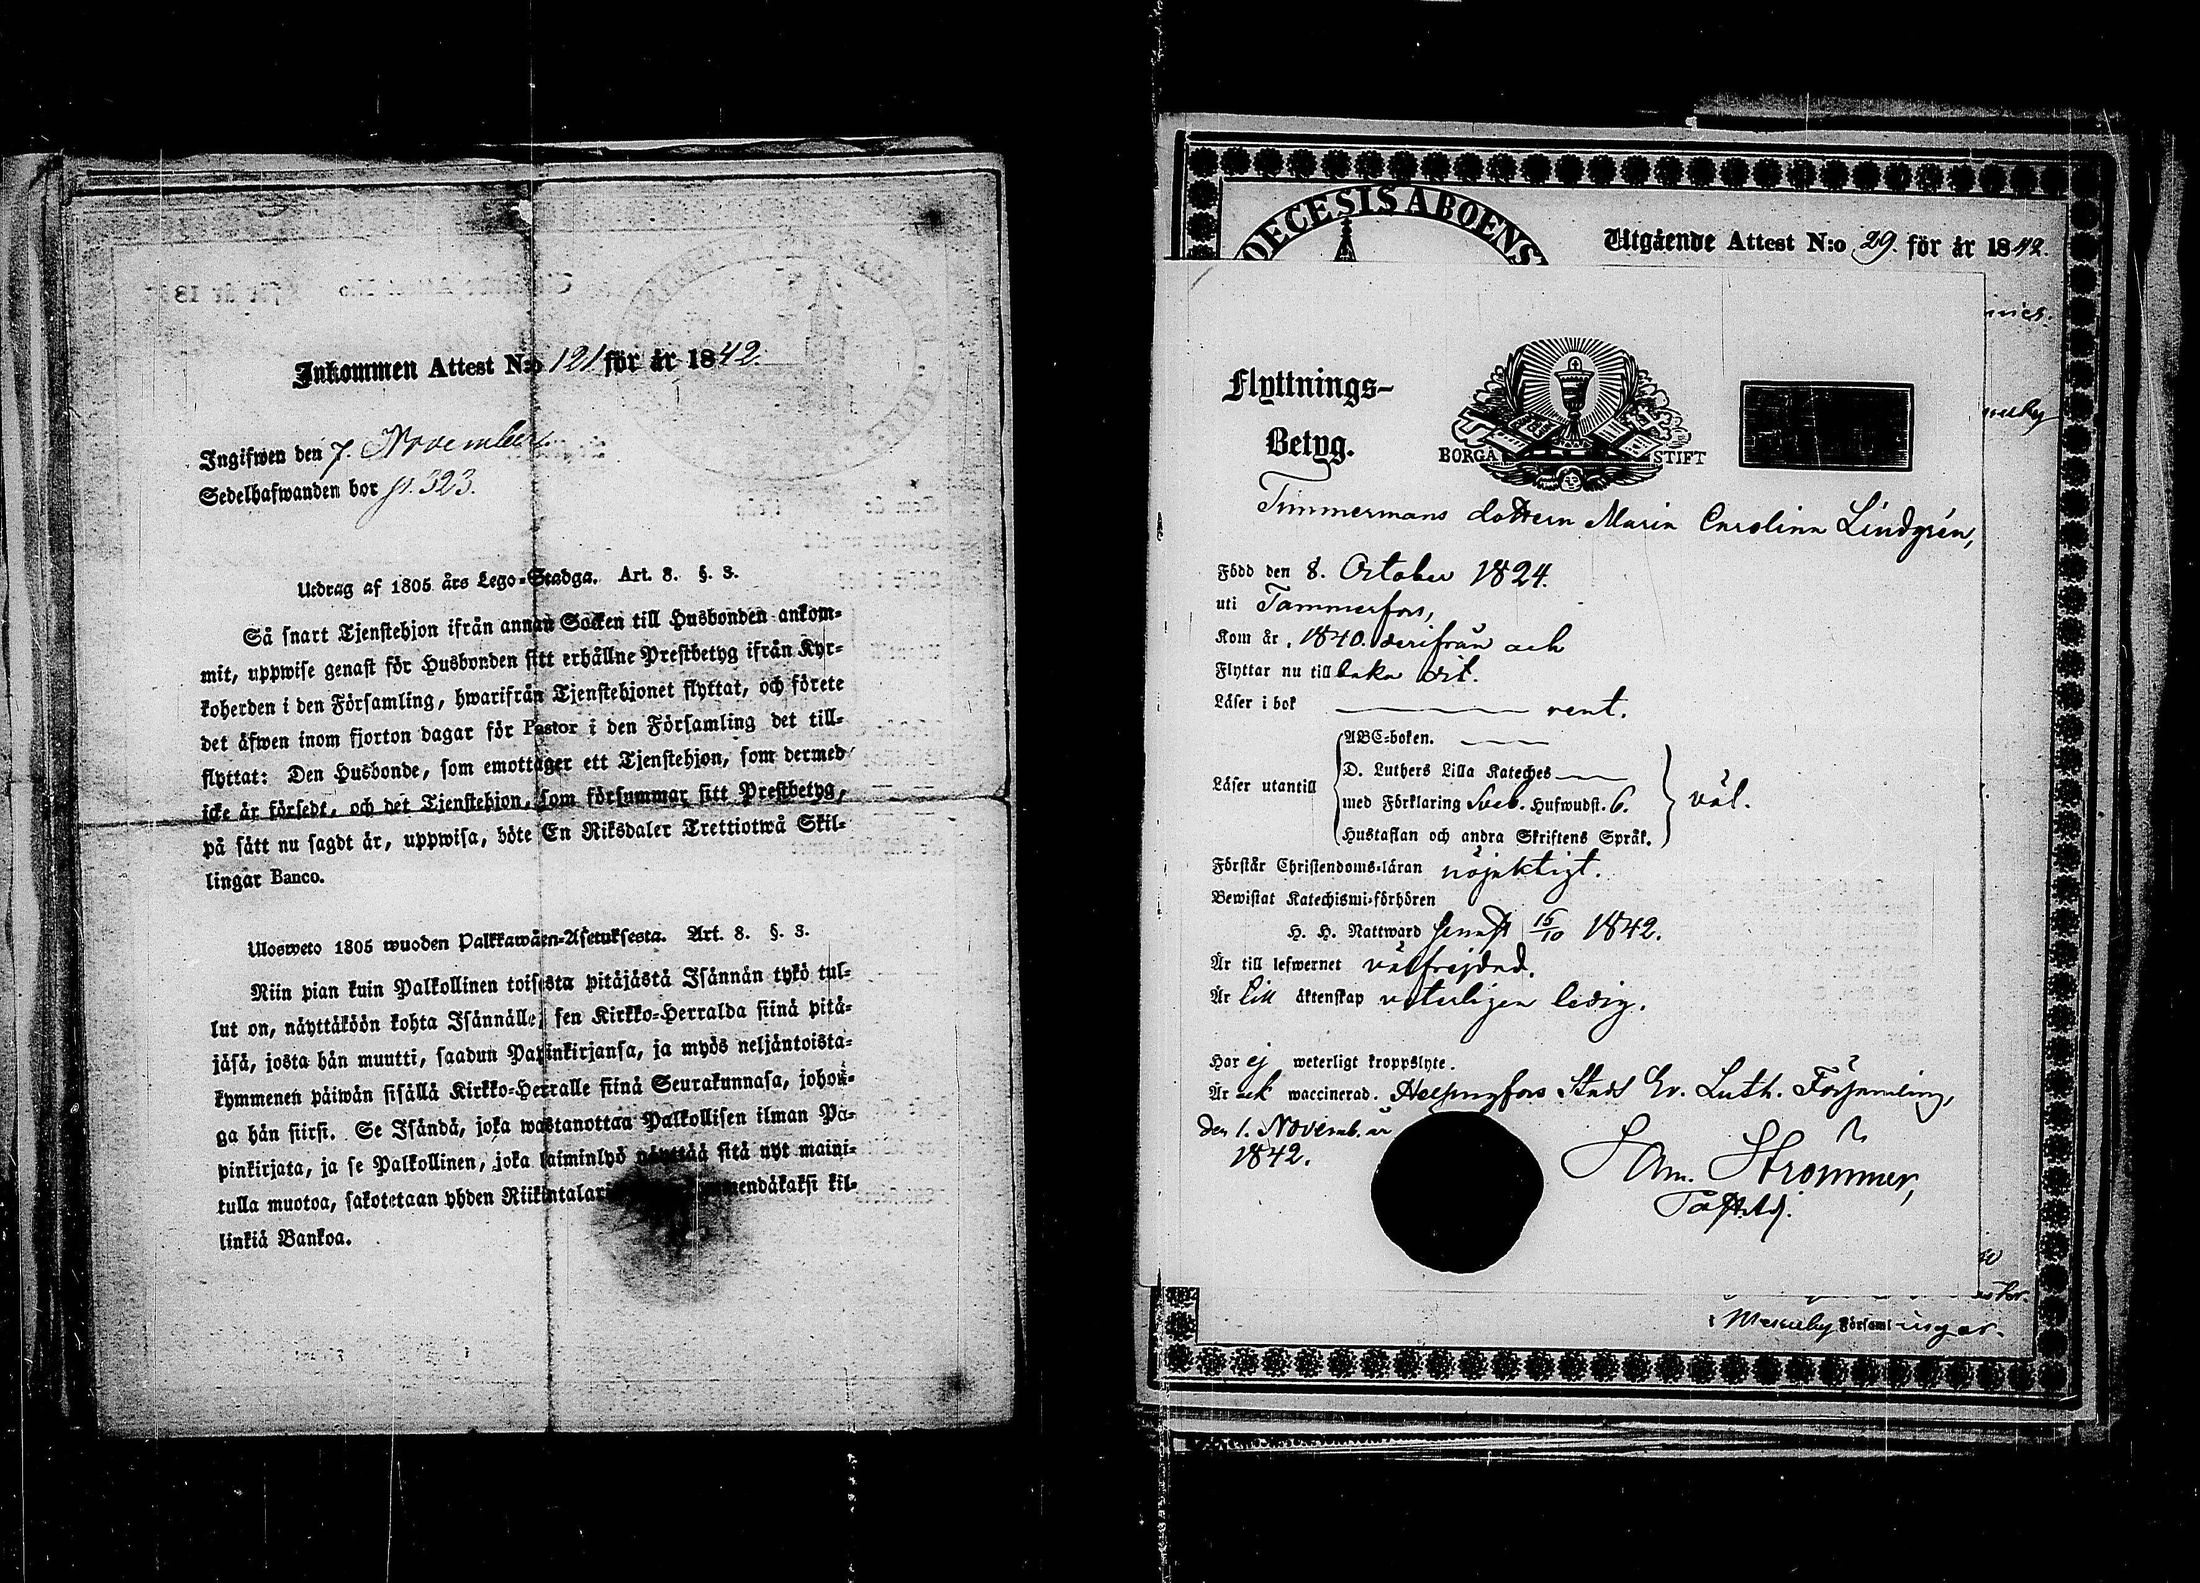 Inkommen Attest N:o 121 för år 1842.
Ingifwen den 7. November
Sedelhafwanden bor p. 323.
Utdrag af 1805 års Lego-Stadga. Art. 8. §. 3.
Så snart Tjenstehjon ifrån annan Socken till Husbonden ankom-
mit, uppwise genast för Husbonden sitt erhållne Prestbetyg ifrån Kyr-
koherden i den Församling, hwarifrån Tjenstehjonet flyttat, och förete
det äfwen inom fjorton dagar för Pastor i den Församling det till-
flyttat: Den Husbonde, som emottager ett Tjenstehjon, som dermed
icke är försedt, och det Tjenstehjon, som försummar sitt Prestbetyg,
på sätt nu sagdt är, uppwisa, böte En Riksdaler Trettiotwå Skil-
lingar Banco.
Ulosweto 1805 wuoden Palkkawäen-Asetuksesta. Art. 8. §. 3.
Niin pian kuin Palkollinen toisesta pitäjästä Isännän tykö tul-
lut on, näyttäköön kohta Isännälle, sen Kirkko-Herralda siinä pitä-
jäsä, josta hän muutti, saadun Papinkirjansa, ja myös neljäntoista-
kymmenen päiwän sisällä Kirkko-Herralle siinä Seurakunnasa, johon-
ga hän siirsi. Se Isändä, joka wastanottaa Palkollisen ilman Pa-
pinkirjata, ja se Palkollinen, joka laiminlyö näyttää sitä nyt maini-
tulla muotoa, sakotetaan yhden Riikintalarin mendäkaksi kil-
linkiä Bankoa.
DECESIS ABOENS
Utgående Attest N:o 29. för år 1842.
Flyttnings-
Betyg.
BORGÅ STIFT
Timmermans dottern Maria Carolina Lindgrén,
Född den 8. October 1824.
uti Tammerfors,
Kom år 1840. derifrån och
Flyttar nu tillbaka dit.
Läser i bok rent.
ABC-boken.
D. Luthers Lilla Kateches
Läser utantill med Förklaring Sveb. Hufwudst. 6. väl.
Hustaflan och andra Skriftens Språk.
Förstår Christendoms-läran nöjaktigt.
Bewistat Katechismi-förhören
H. H. Nattward senast 16/10 1842.
Är till lefwernet välfrejdad.
Är till äktenskap veterligen ledig.
Har ej weterligt kroppslyte.
Är ock waccinerad. Helsingfors Stads Ev. Luth. Församling,
den 1. Novemb. år
1842.
Sam. Strömmer,
Past. Adj.
Messuby Församlingar.